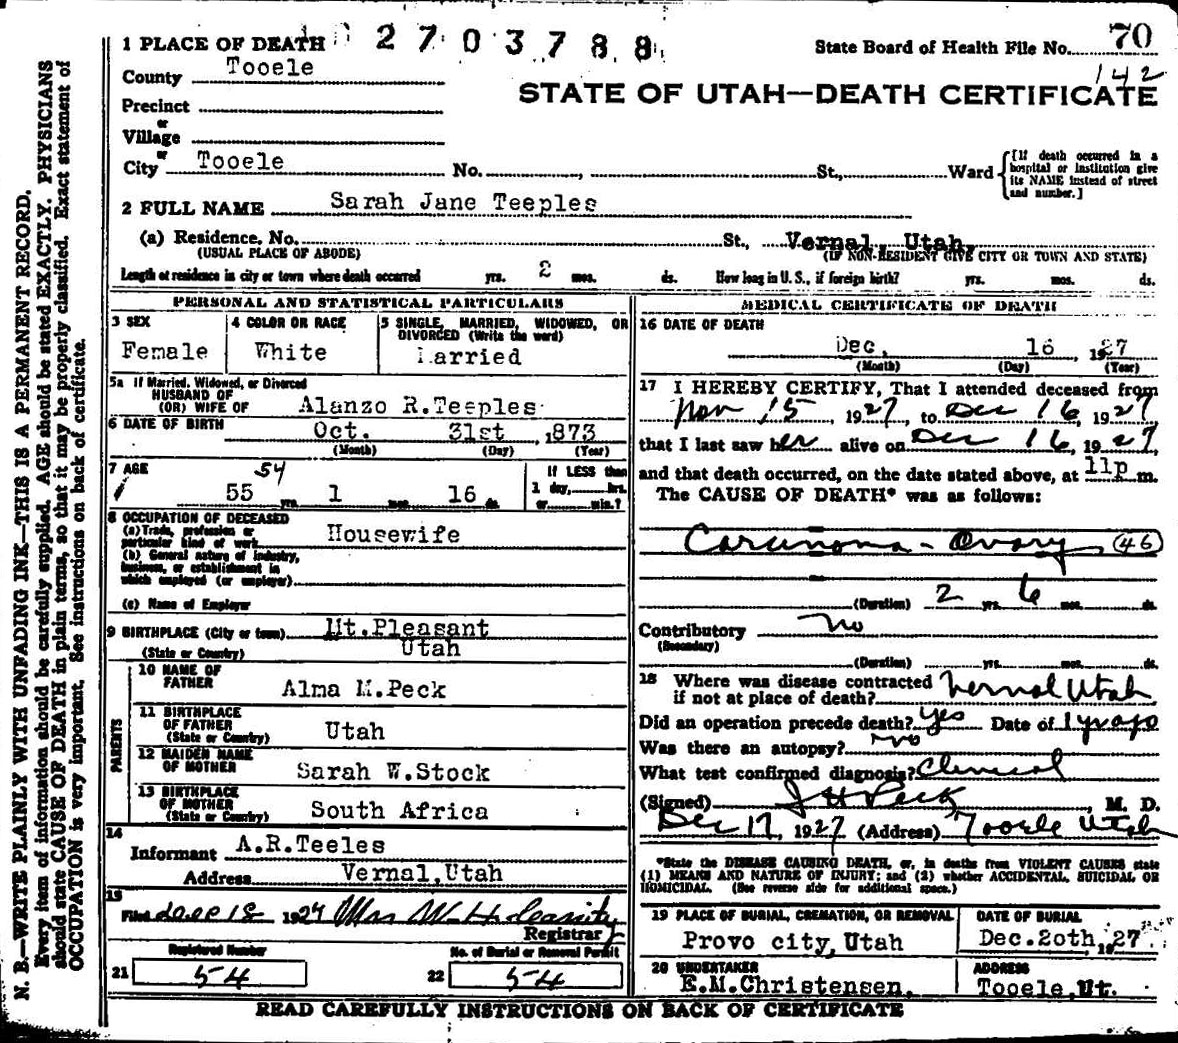 1 PLACE OF DEATH 2703788 State Board of Health File No. 70
142
County Tooele
STATE OF UTAH—DEATH CERTIFICATE
Precinct
or
Village
or
City Tooele No. , St., Ward [If death occurred in a hospital or institution give its NAME instead of street and number.]
2 FULL NAME Sarah Jane Teeples
(a) Residence, No. St., Vernal, Utah,
(USUAL PLACE OF ABODE) (IF NON-RESIDENT GIVE CITY OR TOWN AND STATE)
Length of residence in city or town where death occurred yrs. 2 mos. ds. How long in U. S., if foreign birth? yrs. mos. ds.
PERSONAL AND STATISTICAL PARTICULARS
3 SEX
Female
4 COLOR OR RACE
White
5 SINGLE, MARRIED, WIDOWED, OR
DIVORCED (Write the word)
Married
5a If Married, Widowed, or Divorced
HUSBAND OF
(OR) WIFE OF Alanzo R.Teeples
6 DATE OF BIRTH Oct. 31st , 1873
(Month) (Day) (Year)
7 AGE 54
55 yrs. 1 mos. 16 ds.
If LESS than
1 day, hrs.
or min.?
8 OCCUPATION OF DECEASED
(a) Trade, profession or
particular kind of work Housewife
(b) General nature of industry,
business, or establishment in
which employed (or employer)
(c) Name of Employer
9 BIRTHPLACE (City or town) Mt.Pleasant
(State or Country) Utah
PARENTS
10 NAME OF
FATHER Alma M.Peck
11 BIRTHPLACE
OF FATHER
(State or Country) Utah
12 MAIDEN NAME
OF MOTHER Sarah W.Stock
13 BIRTHPLACE
OF MOTHER
(State or Country) South Africa
14
Informant A.R.Teeles
Address Vernal,Utah
15
Filed Dec 18 1927 Mrs W. H.
Registrar
Registered Number
21 54
No. of Burial or Removal Permit
22 54
MEDICAL CERTIFICATE OF DEATH
16 DATE OF DEATH
Dec. 16 , 1927
(Month) (Day) (Year)
17 I HEREBY CERTIFY, That I attended deceased from
Nov 15 1927, to Dec 16, 1927
that I last saw her alive on Dec 16, 1927,
and that death occurred, on the date stated above, at 11p m.
The CAUSE OF DEATH* was as follows:
Carcinoma - Ovary (46)
(Duration) 2 yrs. 6 mos. ds.
Contributory No
(Secondary)
(Duration) yrs. mos. ds.
18 Where was disease contracted
if not at place of death? Vernal Utah
Did an operation precede death? Yes Date of 1 yr ago
Was there an autopsy? No
What test confirmed diagnosis? Clinical
(Signed) J H Peck, M. D.
Dec 17, 1927 (Address) Tooele Utah
*State the DISEASE CAUSING DEATH, or, in deaths from VIOLENT CAUSES state
(1) MEANS AND NATURE OF INJURY; and (2) whether ACCIDENTAL, SUICIDAL OR
HOMICIDAL. (See reverse side for additional space.)
19 PLACE OF BURIAL, CREMATION, OR REMOVAL
Provo city,Utah
DATE OF BURIAL
Dec.20th, 1927
20 UNDERTAKER
E.M.Christensen.
ADDRESS
Tooele,Ut.
READ CAREFULLY INSTRUCTIONS ON BACK OF CERTIFICATE
N. B.—WRITE PLAINLY WITH UNFADING INK—THIS IS A PERMANENT RECORD.
Every item of information should be carefully supplied. AGE should be stated EXACTLY. PHYSICIANS
should state CAUSE OF DEATH in plain terms, so that it may be properly classified. Exact statement of
OCCUPATION is very important. See instructions on back of certificate.